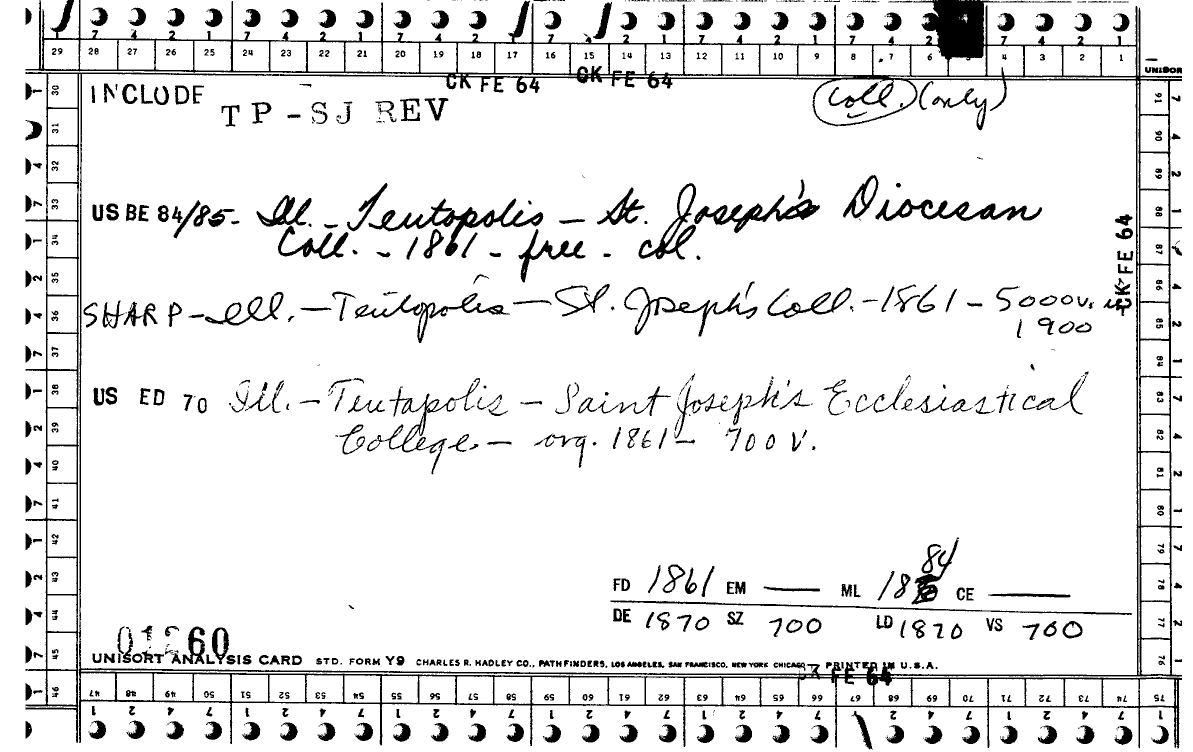 7 4 2 1 7 4 2 1 7 4 2 1 7 4 2 1 7 4 2 1 7 4 2 1 7 4 2 1
29 28 27 26 25 24 23 22 21 20 19 18 17 16 15 14 13 12 11 10 9 8 7 6 5 4 3 2 1
UNISOR
CK FE 64 CK FE 64
INCLUDE TP-SJ REV (Coll.) (only)
US BE 84/85- Ill. - Teutopolis - St. Joseph's Diocesan
Coll. - 1861 - free - col.
CK FE 64
SHARP - Ill. - Teutopolis - St. Joseph's Coll. - 1861 - 5000v. in
1900
US ED 70 Ill. - Teutapolis - Saint Joseph's Ecclesiastical
College - org. 1861 - 700 v.
84
FD 1861 EM — ML 18 CE —
DE 1870 SZ 700 LD 1870 VS 700
01260
UNISORT ANALYSIS CARD STD. FORM Y9 CHARLES R. HADLEY CO., PATHFINDERS, LOS ANGELES, SAN FRANCISCO, NEW YORK CHICAGO PRINTED IN U.S.A.
FE 64
30 31 32 33 34 35 36 37 38 39 40 41 42 43 44 45 46
47 48 49 50 51 52 53 54 55 56 57 58 59 60 61 62 63 64 65 66 67 68 69 70 71 72 73 74 75
91 90 89 88 87 86 85 84 83 82 81 80 79 78 77 76